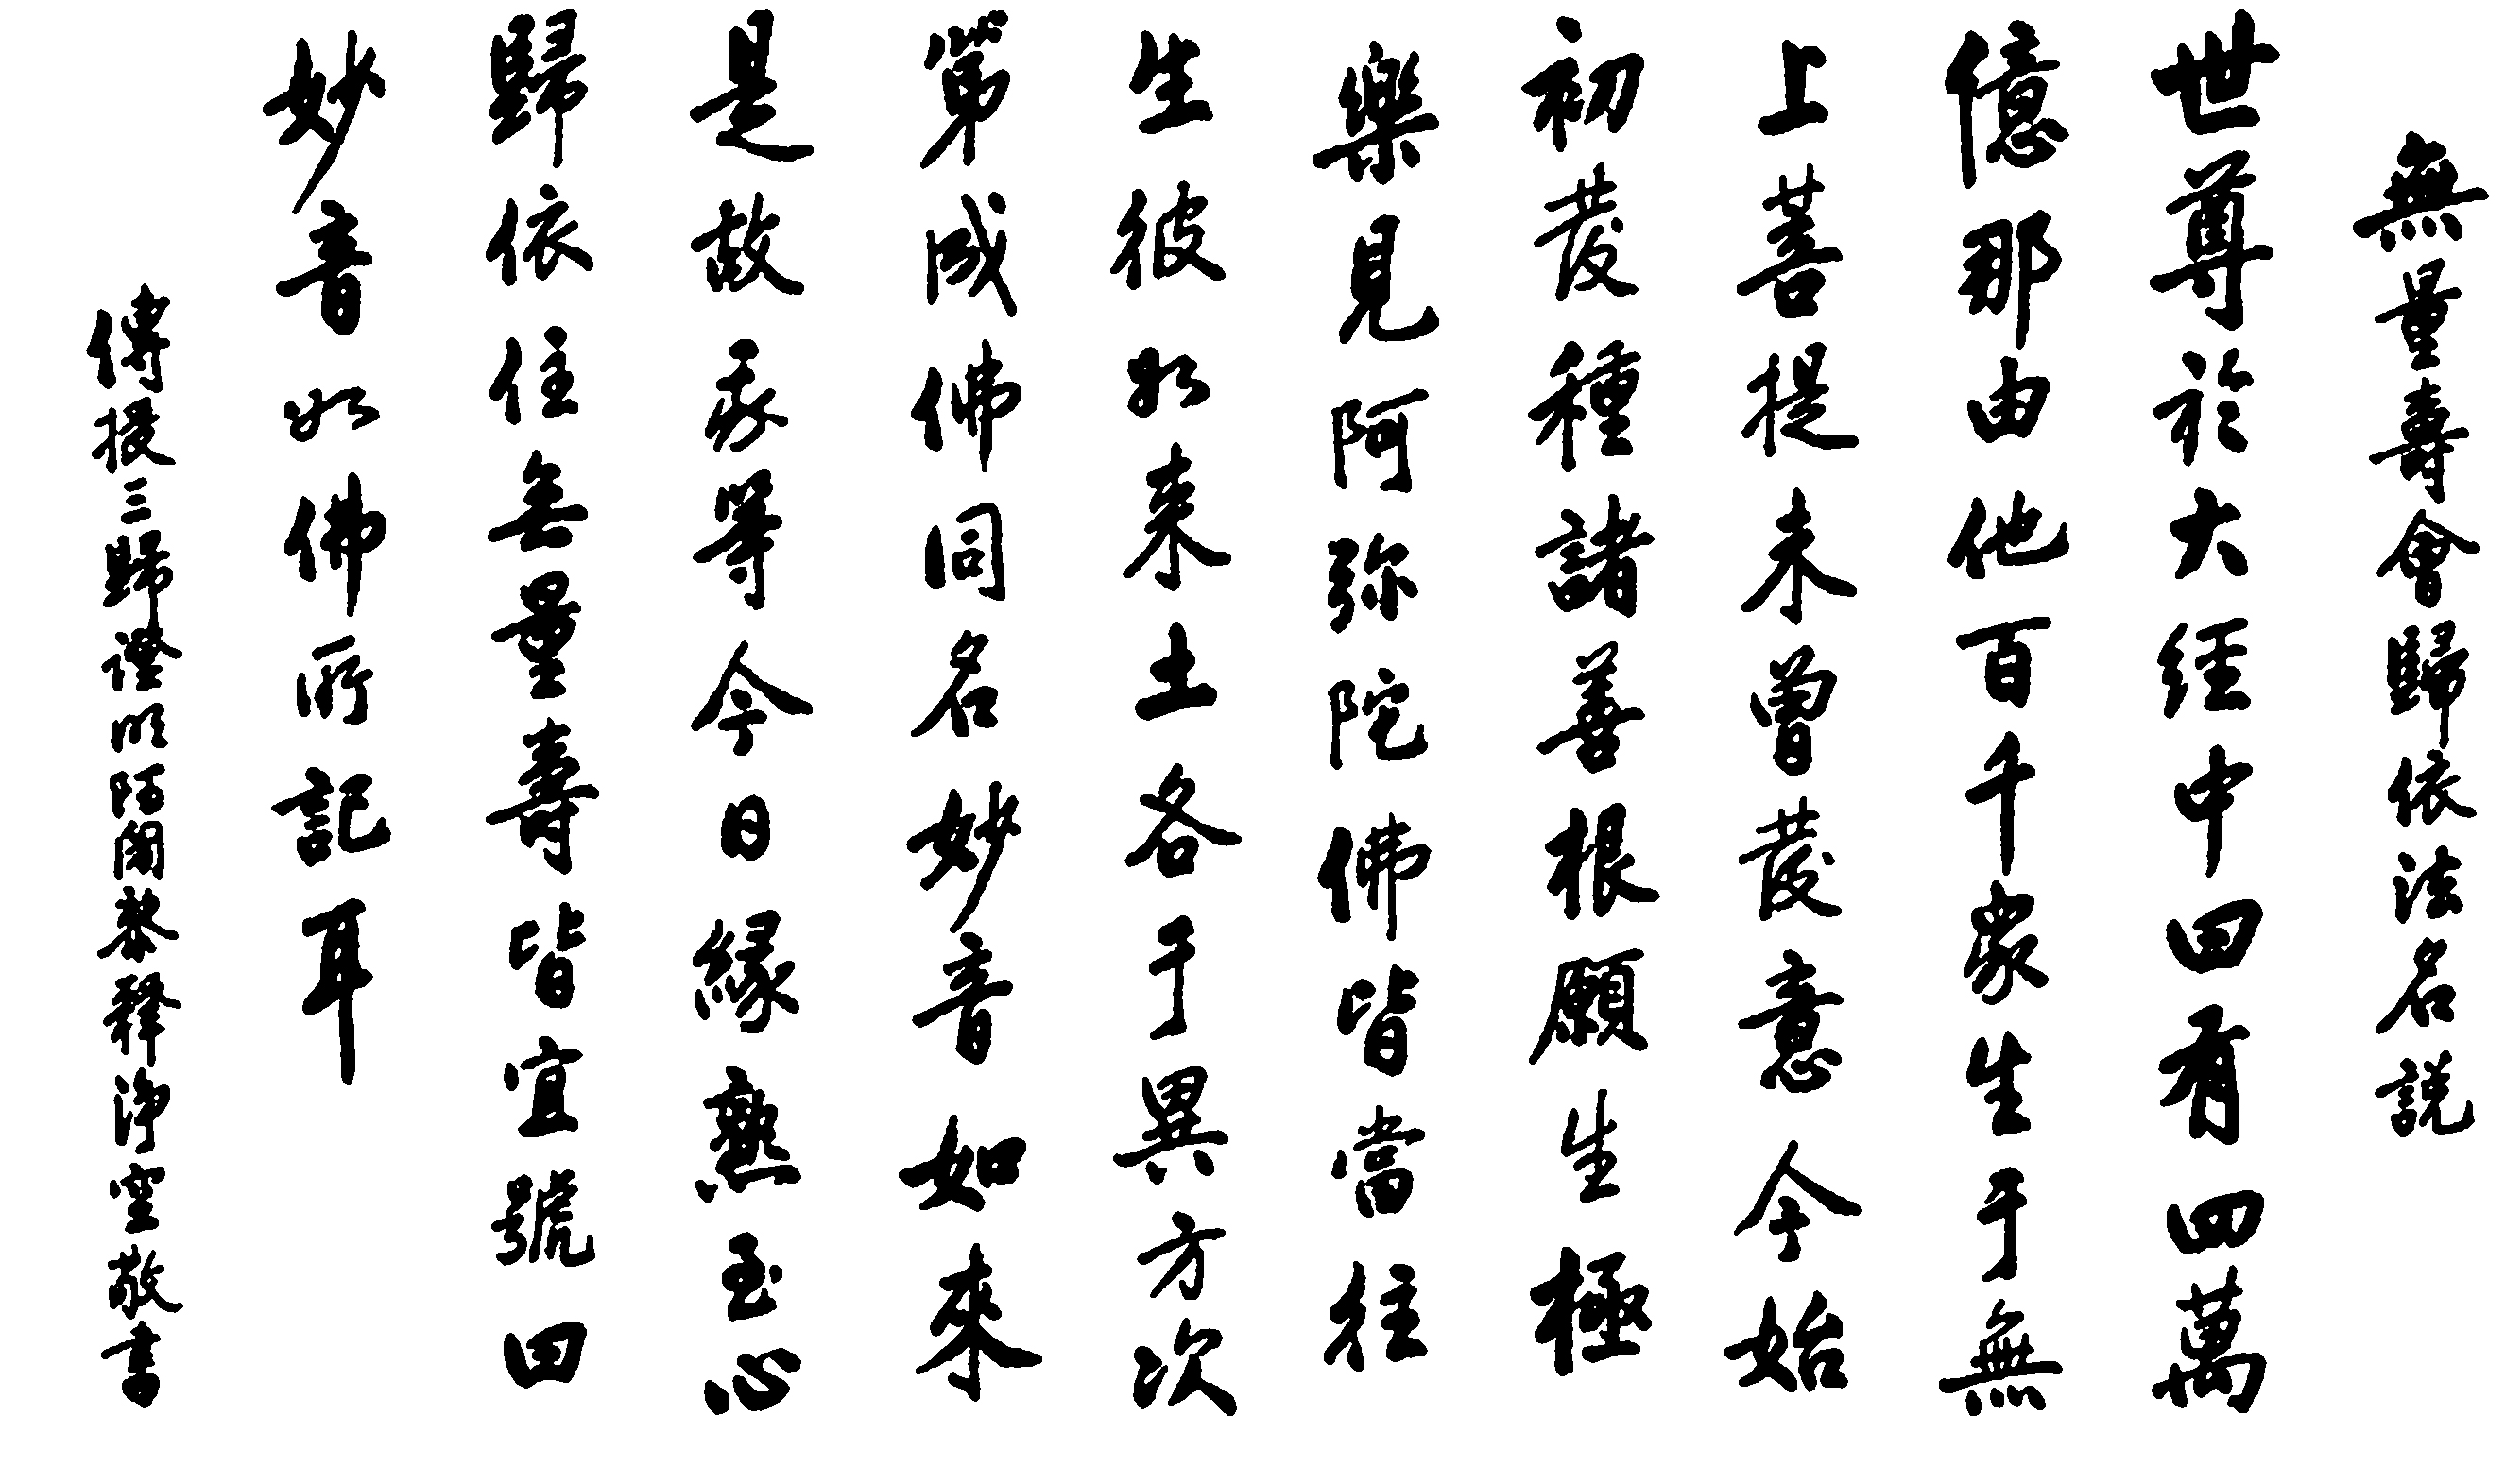 無量壽會歸依法名說
世尊於大經中曰有四萬
億那由他百千眾生于無
上菩提未曾發意今始
初發種諸善根願生極
樂見阿弥陀佛皆當往
生彼如來土各于異方次
第成佛同名妙音如來
是故我等今日緣熟至心
歸依住無量壽皆宜號曰
妙音如佛所記耳
傳授三歸證明阿闍黎釋淨空敬書